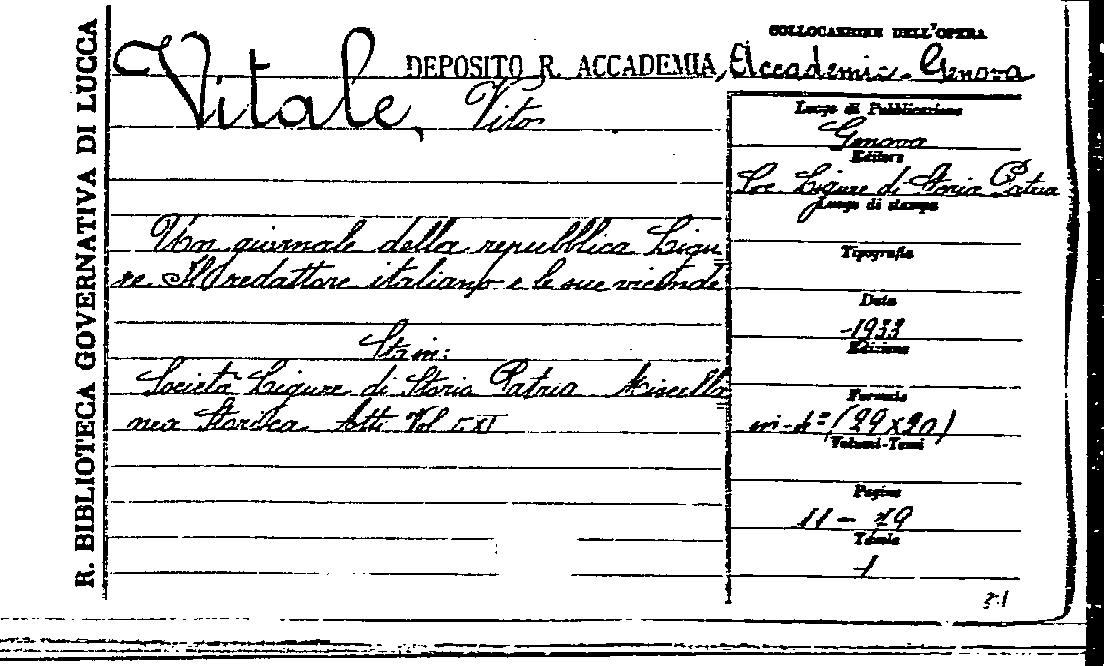 R. BIBLIOTECA GOVERNATIVA DI LUCCA
Vitale, Vito
DEPOSITO R. ACCADEMIA,
Un giornale della repubblica Ligu
re Il redattore italiano e le sue vicende
Società Ligure di Storia Patria Miscella
nea Storica Atti Vol
COLLOCAZIONE DELL'OPERA
Accademia - Genova
Luogo di Pubblicazione
Genova
Editore
Soc Ligure di Storia Patria
Luogo di stampa
Tipografia
Data
-1933
Edizione
Formato
(29x20)
Volumi-Tomi
Pagine
11 - 29
Tavole
1